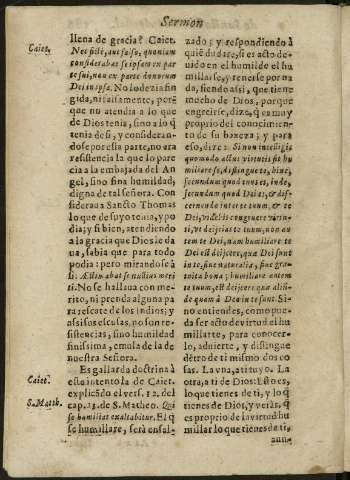 Sermon
llena de gracia? Caiet.
Caiet.
Nec fictè, aut falso, quoniam
considerabat se ipsam ex par
te sui, non ex parte donorum
Dei in ipsa. No lo dezia fin
gida, ni falsamente, porq̃
que no atendia a lo que
de Dios tenia, sino a lo q̃
tenia de si, y consideran-
dose por esta parte, no era
resistencia la que lo pare
cia a la embajada del An
gel, sino fina humildad,
digna de tal señora. Con
sideraua Sancto Thomas
lo que de suyo tenia, y po
dia; y si bien, atendiendo
a la gracia que Dios le da
ua, sabia que para todo
podia: pero mirandose à
si: Æstimabat se nullius meri
ti. No se hallaua con me-
rito, ni prenda alguna pa
ra rescate de los Indios; y
assi sus escusas, no son re-
sistencias, sino humildad
finissima, emula de la de
nuestra Señora.
Es gallarda doctrina à
Caiet.
este intento la de Caiet.
explicãdo el vers. 12. del
cap. 23. de S. Matheo. Qui
S. Matth.
se humiliat exaltabitur. El q̃
se humillare, serà ensal-
zado; y respondiendo à
quiẽ dudare, si es acto de-
uido en el humilde el hu
millarse, y tenerse por na
da, siendo assi, que tiene
mucho de Dios, porque
engreirse, dize, q̃ es muy
proprio del conocimien-
to de su baxeza; y para
esso, dize: Si non intelligis
quomodo actus virtutis sit hu
miliare se, distingue te, hinc,
secundum quod tuus es, inde,
secundum quod Dei es, & dis-
cernendo inter te tuum, & te
Dei, videbis congruere virtu-
ti, vt deijcias te tuum, non au
tem te Dei, nam humiliare te
Dei est deijcere, quæ Dei sunt
in te, siue naturalia, siue gra-
tuita bona; humiliare autem
te tuum, est deijcere quæ aliũ-
de quam à Deo in te sunt. Si-
no entiendes, como pue-
da ser acto de virtud el hu
millarte, para conocer-
lo, aduierte, y distingue
dẽtro de ti mismo dos co
sas. La vna, a ti tuyo. La
otra, a ti de Dios: Esto es,
lo que tienes de ti, y lo q̃
tienes de Dios, y veràs, q̃
es proprio de la virtud hu
millar lo que tienes de ti,
aun-